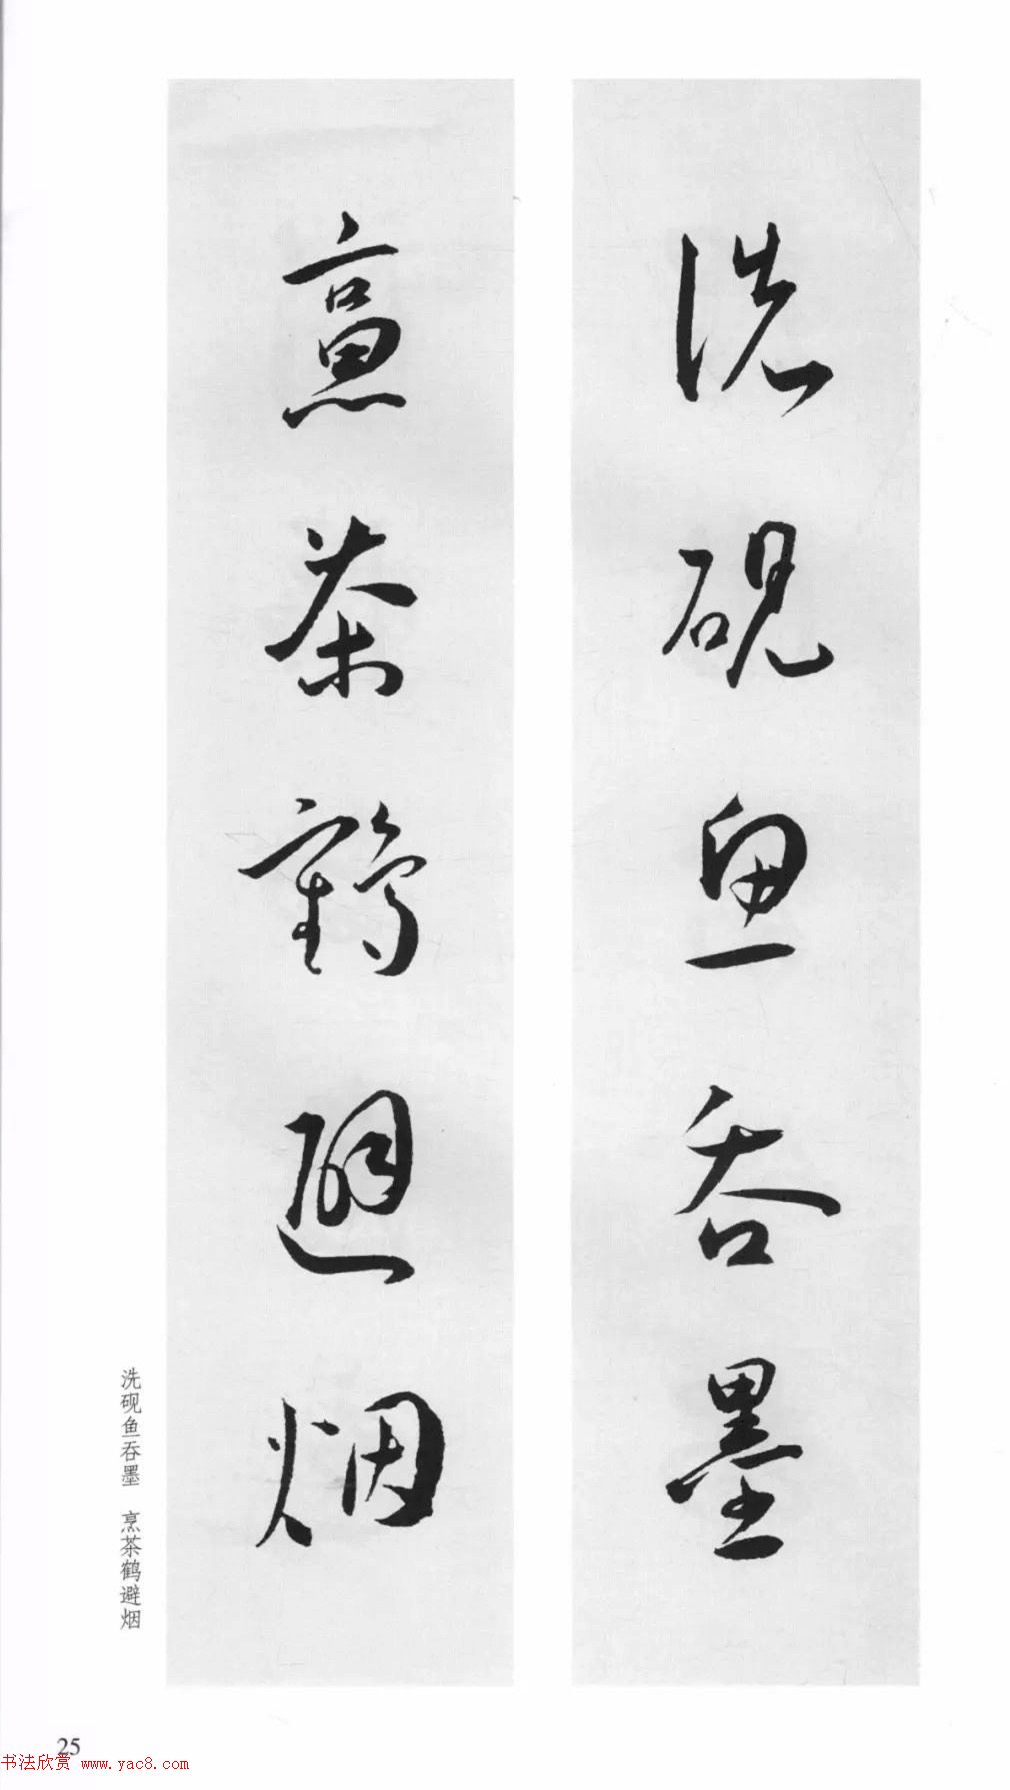 洗砚鱼吞墨
烹茶鹤避烟
洗砚鱼吞墨 烹茶鹤避烟
25
书法欣赏 www.yac8.com